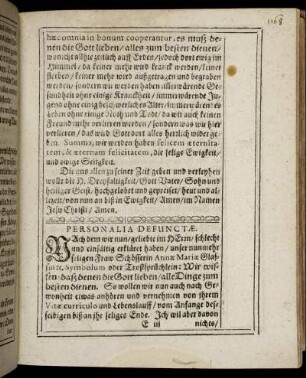 hæc omnia in bonum cooperantur, es muß de-
nen die Gott lieben / alles zum besten dienen /
wo nicht allhie zeitlich auff Erden / jedoch dort ewig im
Himmel / da keiner mehr wird kranck werden / keiner
sterben / keiner mehr wird außgetragen und begraben
werden / sondern wir werden haben immerwärende Ge-
sundheit ohne einige Kranckheit / immerwärende Ju-
gend ohne einig beschwerliches Alter / immerwärendes
Leben ohne einige Noth und Tode / da wir auch keinen
Freund mehr verlieren werden / sondern was wir hier
verlieren / das wird Gott dort alles herrlich wider ge-
ben. Summa, wir werden haben felicem æternita-
tem, & æternam felicitatem, die selige Ewigkeit /
und ewige Seligkeit.
Die uns allen zu seiner Zeit geben und verleyhen
wolle die H. Dreyfaltigkeit / Gott Vater / Sohn und
heiliger Geist / hochgelobet und gepreiset / heut und al-
lezeit / von nun an biß in Ewigkeit / Amen / im Namen
Jesu Christi / Amen.
PERSONALIA DEFUNCTÆ.
Nach dem wir nun / geliebte im HErrn / schlecht
und einfältig erkläret haben / unser nunmehr
seligen Fraw Schösserin Annæ Mariæ Glas-
Symbolum oder Trostsprüchlein: Wir wis-
sen / daß denen die Gott lieben / alle Dinge zum
besten dienen. So wollen wir nun auch nach Ge-
wonheit etwas anhören und vernehmen von ihrem
Vitæ curriculo und Lebenslauff / vom Anfange des-
selbigen biß an ihr seliges Ende. Ich wil aber davon
E iij nichts /